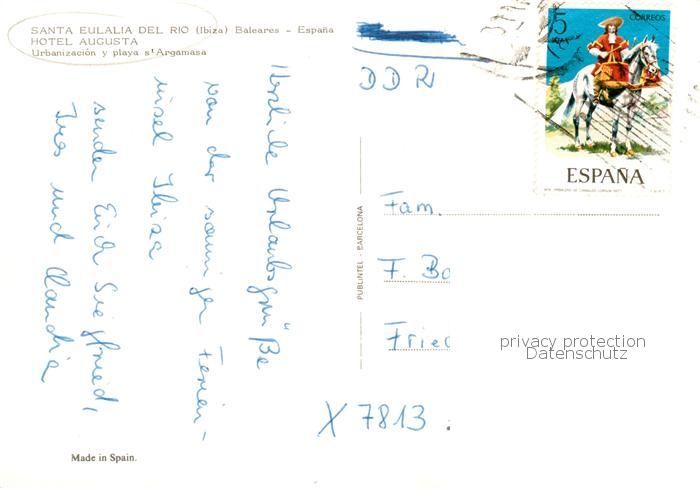 SANTA EULALIA DEL RIO (Ibiza) Baleares - España
HOTEL AUGUSTA
Urbanización y playa s'Argamasa
Herzliche Urlaubsgrüße
von der sonnigen Ferien-
insel Ibiza
senden Euch Siegfried,
Ines und Claudia
Made in Spain.
PUBLINTEL - BARCELONA
DDR
Fam.
F. Bo
Fried
X 7813
5
CORREOS
ESPAÑA
privacy protection
Datenschutz